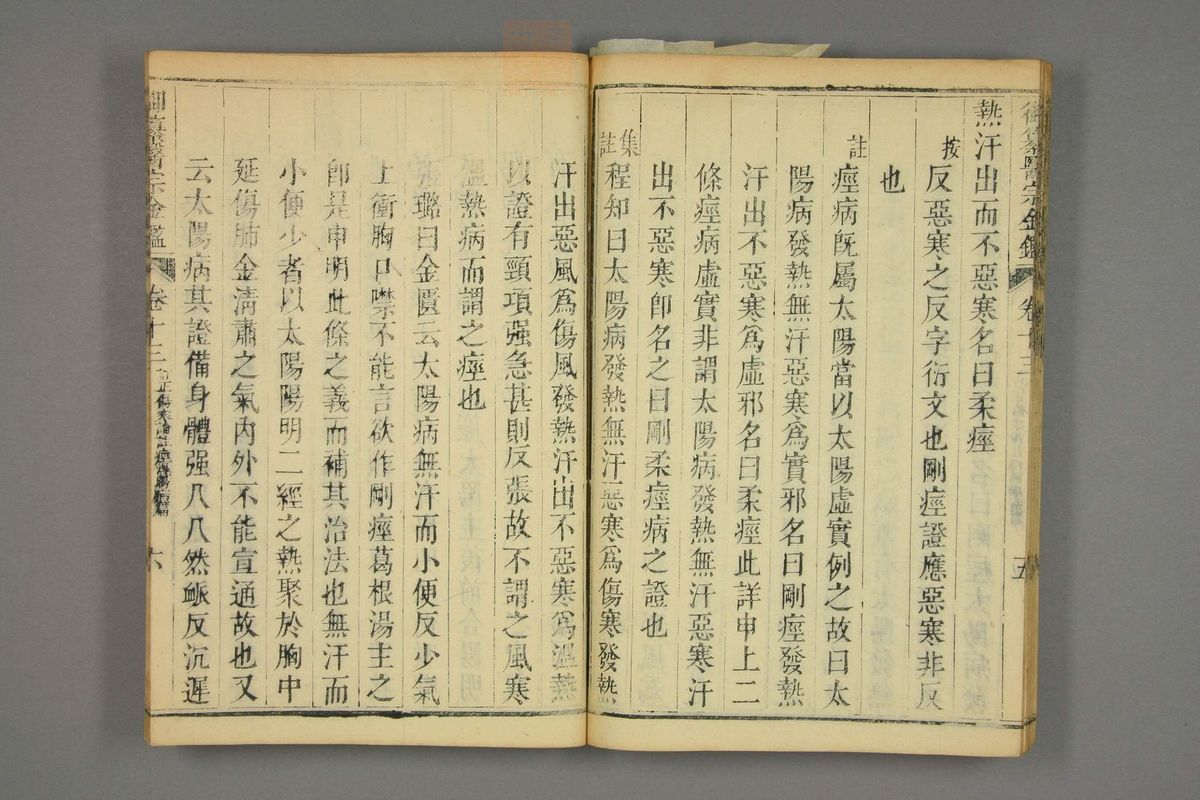 御纂醫宗金鑑 卷十三 五
熱汗出而不惡寒名曰柔痙
按 反惡寒之反字衍文也剛痙證應惡寒非反
也
註 痙病既屬太陽當以太陽虛實例之故曰太
陽病發熱無汗惡寒爲實邪名曰剛痙發熱
汗出不惡寒爲虛邪名曰柔痙此詳申上二
條痙病虛實非謂太陽病發熱無汗惡寒汗
出不惡寒卽名之曰剛柔痙病之證也
集註 程知曰太陽病發熱無汗惡寒爲傷寒發熱
汗出惡風爲傷風發熱汗出不惡寒爲溫熱
以證有頸項强急甚則反張故不謂之風寒
溫熱病而謂之痙也
張璐曰金匱云太陽病無汗而小便反少氣
上衝胸口噤不能言欲作剛痙葛根湯主之
卽是申明此條之義而補其治法也無汗而
小便少者以太陽陽明二經之熱聚於胸中
延傷肺金淸肅之氣內外不能宣通故也又
云太陽病其證備身體强几几然脈反沉遲
御纂醫宗金鑑 卷十三 六